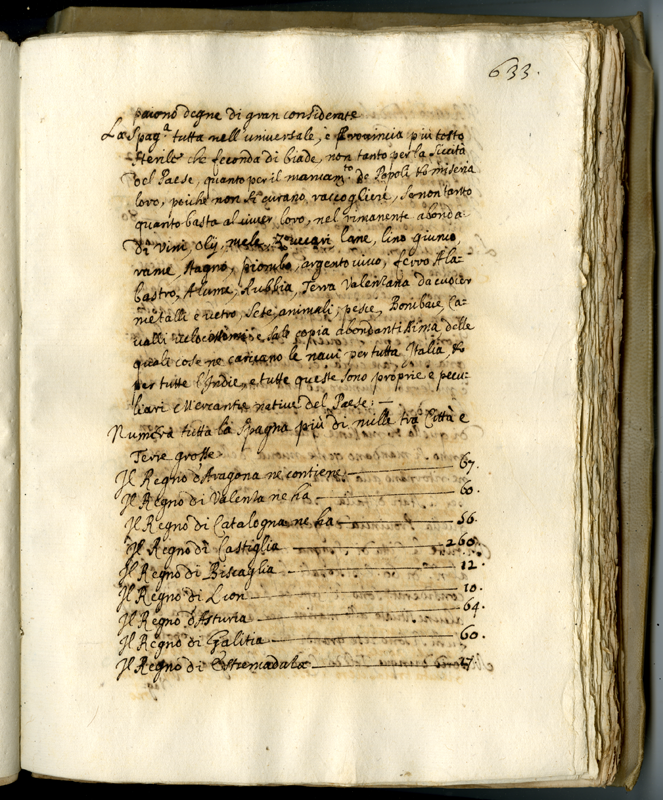 633.
paiono degne di gran considerat.e
La Spag.a tutta nell'universale, è Provincia più tosto
sterile che feconda di biade, non tanto per la siccità
del Paese, quanto per il mancam.to de Popoli, et miseria
loro, poiche non si curano raccogliere, se non tanto
quanto basta al viver loro, nel rimanente abonda
di vini, olij, mele, Zuccari, lane, lino, giunco,
rame, stagno, piombo, argento vivo, ferro, Ala-
bastro, Alume, Rubbia, Terra Valenzana da
metalli e vetro, Sete, animali, pesce, Bombace, Ca-
valli velocissimi, e sale copia abondantissima delle
quali cose ne caricano le navi per tutta Italia, et
per tutte l'Indie, e tutte queste sono proprie e pecu-
liari e Mercantie native del Paese: —
Numera tutta la Spagna più di mille trà Città e
Terre grosse
Il Regno d'Aragona ne contiene — 67.
Il Regno di Valenza ne ha — 60.
Il Regno di Catalogna ne ha — 56.
Il Regno di Castiglia — 260.
Il Regno di Biscaglia — 12.
Il Regno di Lion — 10.
Il Regno d'Asturia — 64.
Il Regno di Galitia — 60.
Il Regno di Estremadula — 27.